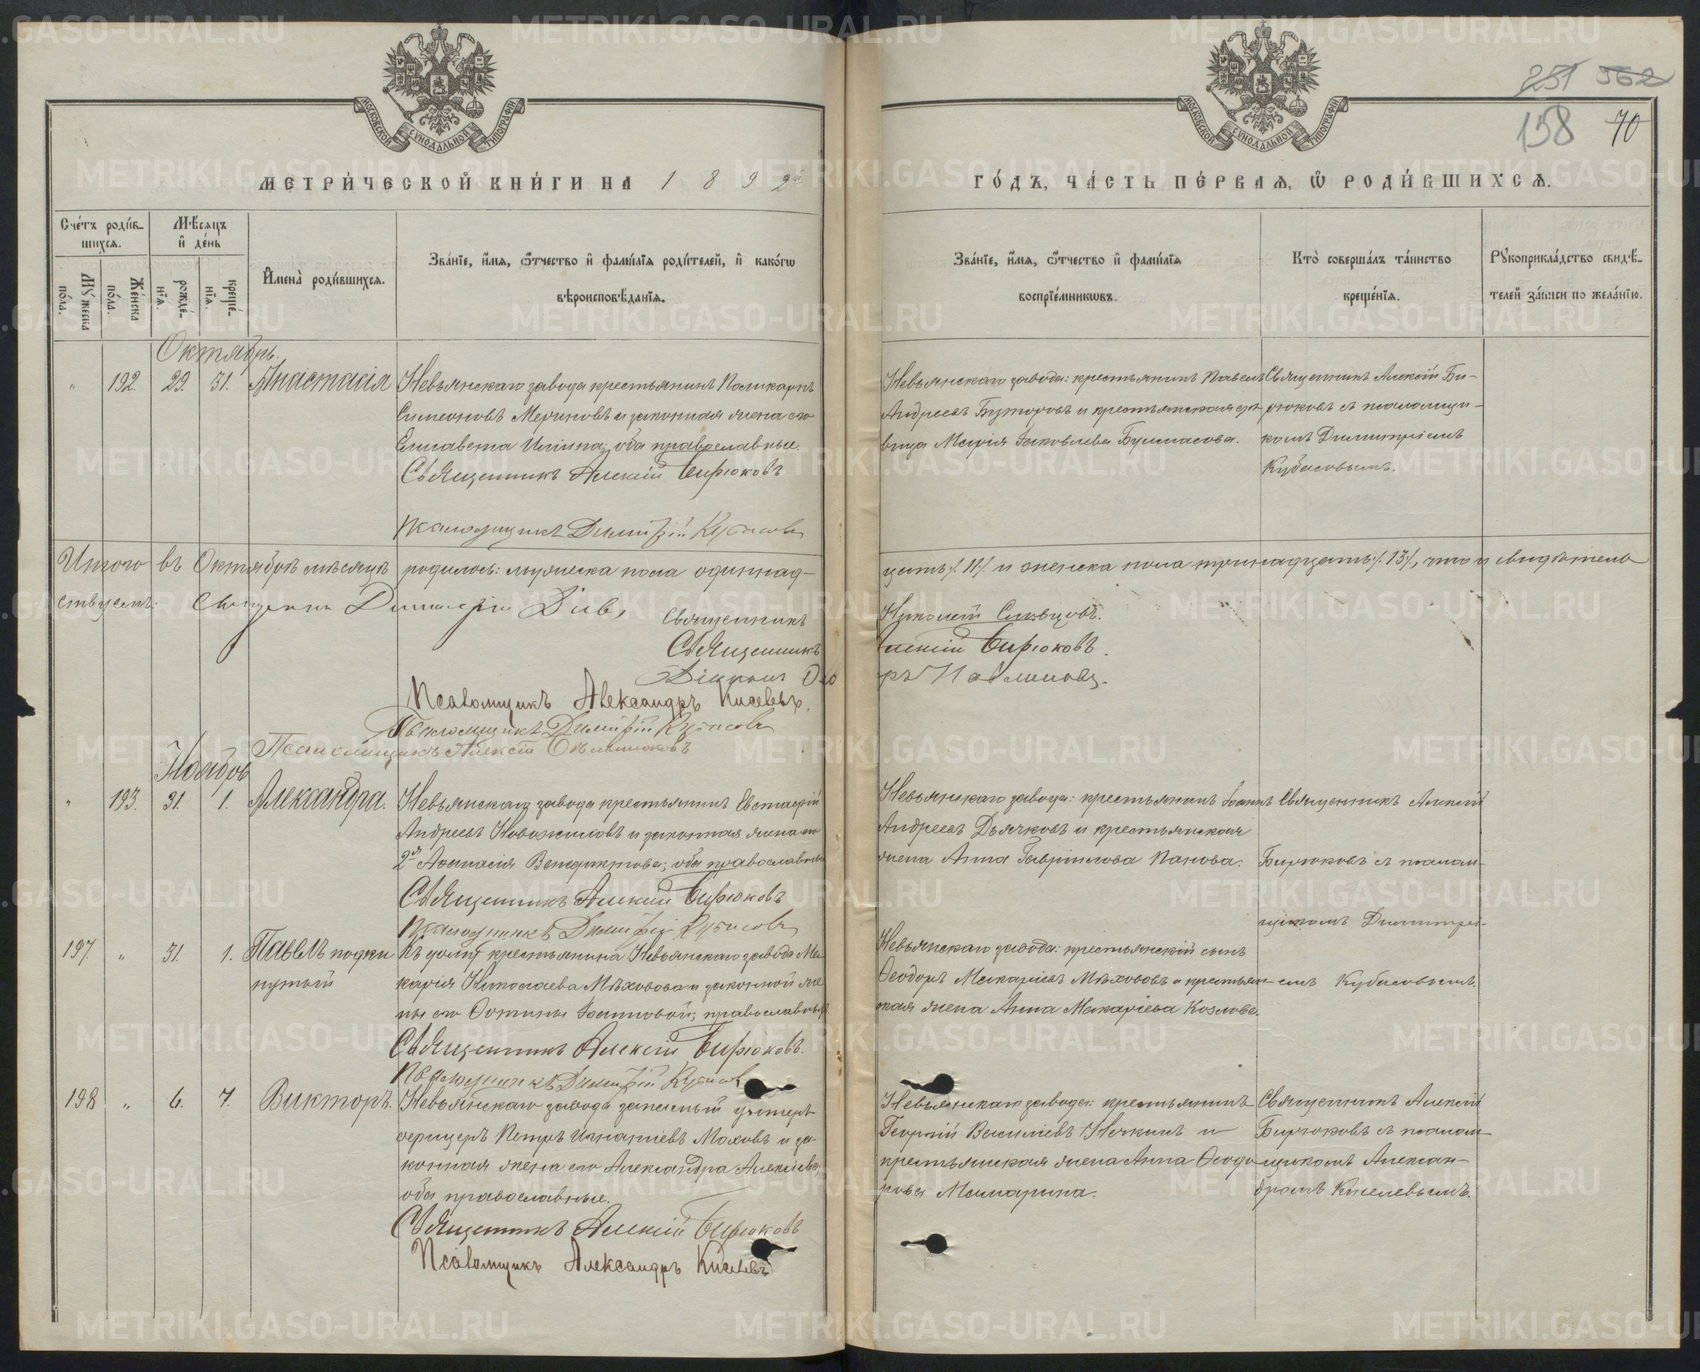 МЕТРИ́ЧЕСКОЙ КНИ́ГИ НА 1892й
ГО́ДЪ, ЧА́СТЬ ПЕ́РВАЯ, Ѡ РОДИ́ВШИХСЯ.
158 70
Сче́тъ роди́в-
шихся.
Мѣ́сяцъ
и де́нь
Му́жеска
по́ла.
Же́нска
по́ла.
рожде́-
нїя.
креще́-
нїя.
И҆мена̀ роди́вшихся.
Зва́нїе, и҆́мя, ѻ҆́тчество и҆ фами́лїя роди́телей, и҆ како́гѡ
вѣроисповѣ́данїя.
Зва́нїе, и҆́мя, ѻ҆́тчество и҆ фами́лїя
воспрїе́мникѡвъ.
Кто̀ соверша́лъ та́инство
креще́нїя.
Рꙋкоприкла́дство свидѣ́-
телей за́писи по жела́нїю.
Октябрь.
" 192. 29. 31. Анастасія
Невьянскаго завода крестьянинъ Поликарпъ
Симеоновъ Мериновъ и законная жена его
Елисавета Ильина; оба православные.
Священникъ Алексій Бирюковъ
Псаломщикъ Димитрій Кубасовъ
Невьянскаго завода: крестьянинъ Павелъ
Андреевъ Буторовъ и крестьянская дѣ-
вица Марія Іаковлева
Священникъ Алексій Би-
рюковъ съ псаломщи-
комъ Димитріемъ
Кубасовымъ.
Итого въ Октябрѣ мѣсяцѣ родилось: мужеска пола одиннад-
цать /11/ и женска пола тринадцать /13/, что и свидѣтель
ствуемъ: Священникъ
Священникъ Николай Словцовъ.
Священникъ Алексій Бирюковъ.
Діаконъ
Псаломщикъ Александръ Киселевъ.
Псаломщикъ Димитрій Кубасовъ
Псаломщикъ Алексій
Ноябрь
" 193. 31. 1. Александра.
Невьянскаго завода крестьянинъ Евстафій
Андреевъ Новожиловъ и законная жена его
2я Аѳанасія Венедиктова; оба православные
Священникъ Алексій Бирюковъ
Псаломщикъ Димитрій Кубасовъ
Невьянскаго завода: крестьянинъ Іоаннъ
Андреевъ Дьячковъ и крестьянская
жена Анна Гавріилова Панова.
Священникъ Алексій
Бирюковъ съ псалом-
щикомъ Димитрі-
емъ Кубасовымъ.
197. " 31. 1. Павелъ подки
нутый
Къ дому крестьянина Невьянскаго завода Ма-
карія Николаева Мѣховова и законной же-
ны его Фотины Іоанновой; православныхъ
Священникъ Алексій Бирюковъ.
Псаломщикъ Димитрій Кубасовъ
Невьянскаго завода: крестьянскій сынъ
Ѳеодоръ Макаріевъ Мѣхововъ и крестьян-
ская жена Анна Макаріева Козлова.
198 " 6. 7. Викторъ.
Невьянскаго завода запасный унтеръ-
офицеръ Петръ Игнатіевъ Моховъ и за-
конная жена его Александра Алексіева
оба православные.
Священникъ Алексій Бирюковъ
Псаломщикъ Александръ Киселевъ
Невьянскаго завода: крестьянинъ
Георгій Василіевъ Нечкинъ и
крестьянская жена Анна Ѳеодо-
рова Мамарина.
Священникъ Алексій
Бирюковъ съ псалом-
щикомъ Алексан-
дромъ Киселевымъ.
METRIKI.GASO-URAL.RU